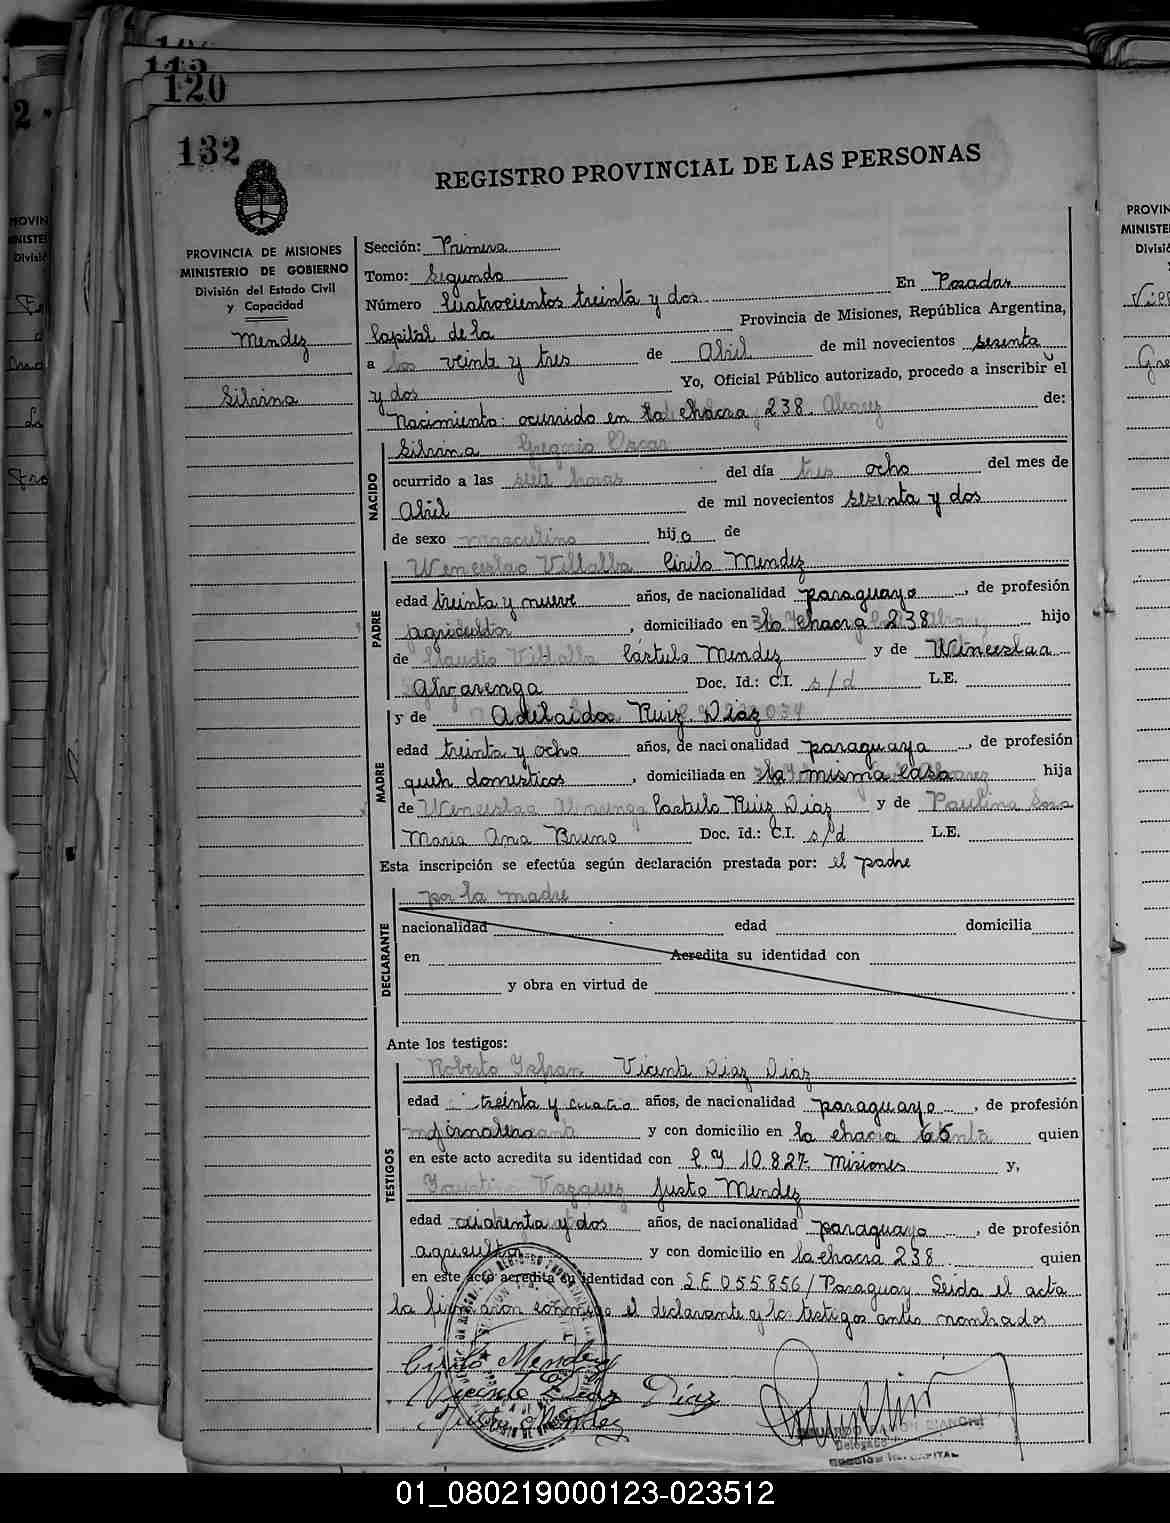 120
132
REGISTRO PROVINCIAL DE LAS PERSONAS
PROVINCIA DE MISIONES
MINISTERIO DE GOBIERNO
División del Estado Civil
y Capacidad
Mendez
Silvina
Sección: Primera
Tomo: Segundo
Número Cuatrocientos treinta y dos En Posadas
Capital de la Provincia de Misiones, República Argentina,
a los veinte y tres de Abril de mil novecientos sesenta
y dos Yo, Oficial Público autorizado, procedo a inscribir el
Nacimiento: ocurrido en la chacra 238. de:
NACIDO
Silvina Gregorio Oscar
ocurrido a las siete horas del día tres ocho del mes de
Abril de mil novecientos sesenta y dos
de sexo masculino hijo de
PADRE
Wenceslao Villalba Cirilo Mendez
edad treinta y nueve años, de nacionalidad paraguayo, de profesión
agricultor, domiciliado en la chacra 238 hijo
de Claudio Villalba Cástulo Mendez y de Winceslaa
Alvarenga Doc. Id.: C.I. s/d L.E.
MADRE
y de Adelaida Ruiz Diaz
edad treinta y ocho años, de nacionalidad paraguaya, de profesión
queh domesticos, domiciliada en la misma casa hija
de Wenceslao Castulo Ruiz Diaz y de Paulina Sosa
Maria Ana Bruno Doc. Id.: C.I. s/d L.E.
Esta inscripción se efectúa según declaración prestada por: el padre
DECLARANTE
por la madre
nacionalidad edad domicilia
en Acredita su identidad con
y obra en virtud de
Ante los testigos:
TESTIGOS
Roberto Vicente Diaz Diaz
edad treinta y cuatro años, de nacionalidad paraguayo, de profesión
jornalero y con domicilio en la chacra 65 quien
en este acto acredita su identidad con C.I 10.827. Misiones y,
Faustino Vazquez Justo Mendez
edad cuarenta y dos años, de nacionalidad paraguayo, de profesión
agricultor y con domicilio en la chacra 238 quien
en este acto acredita su identidad con L.E 055.856/Paraguay. Leida el acta
la firmaron conmigo el declarante y los testigos antes nombrados
Cirilo Mendez
Vicente Diaz Diaz
Justo Mendez
01_080219000123-023512